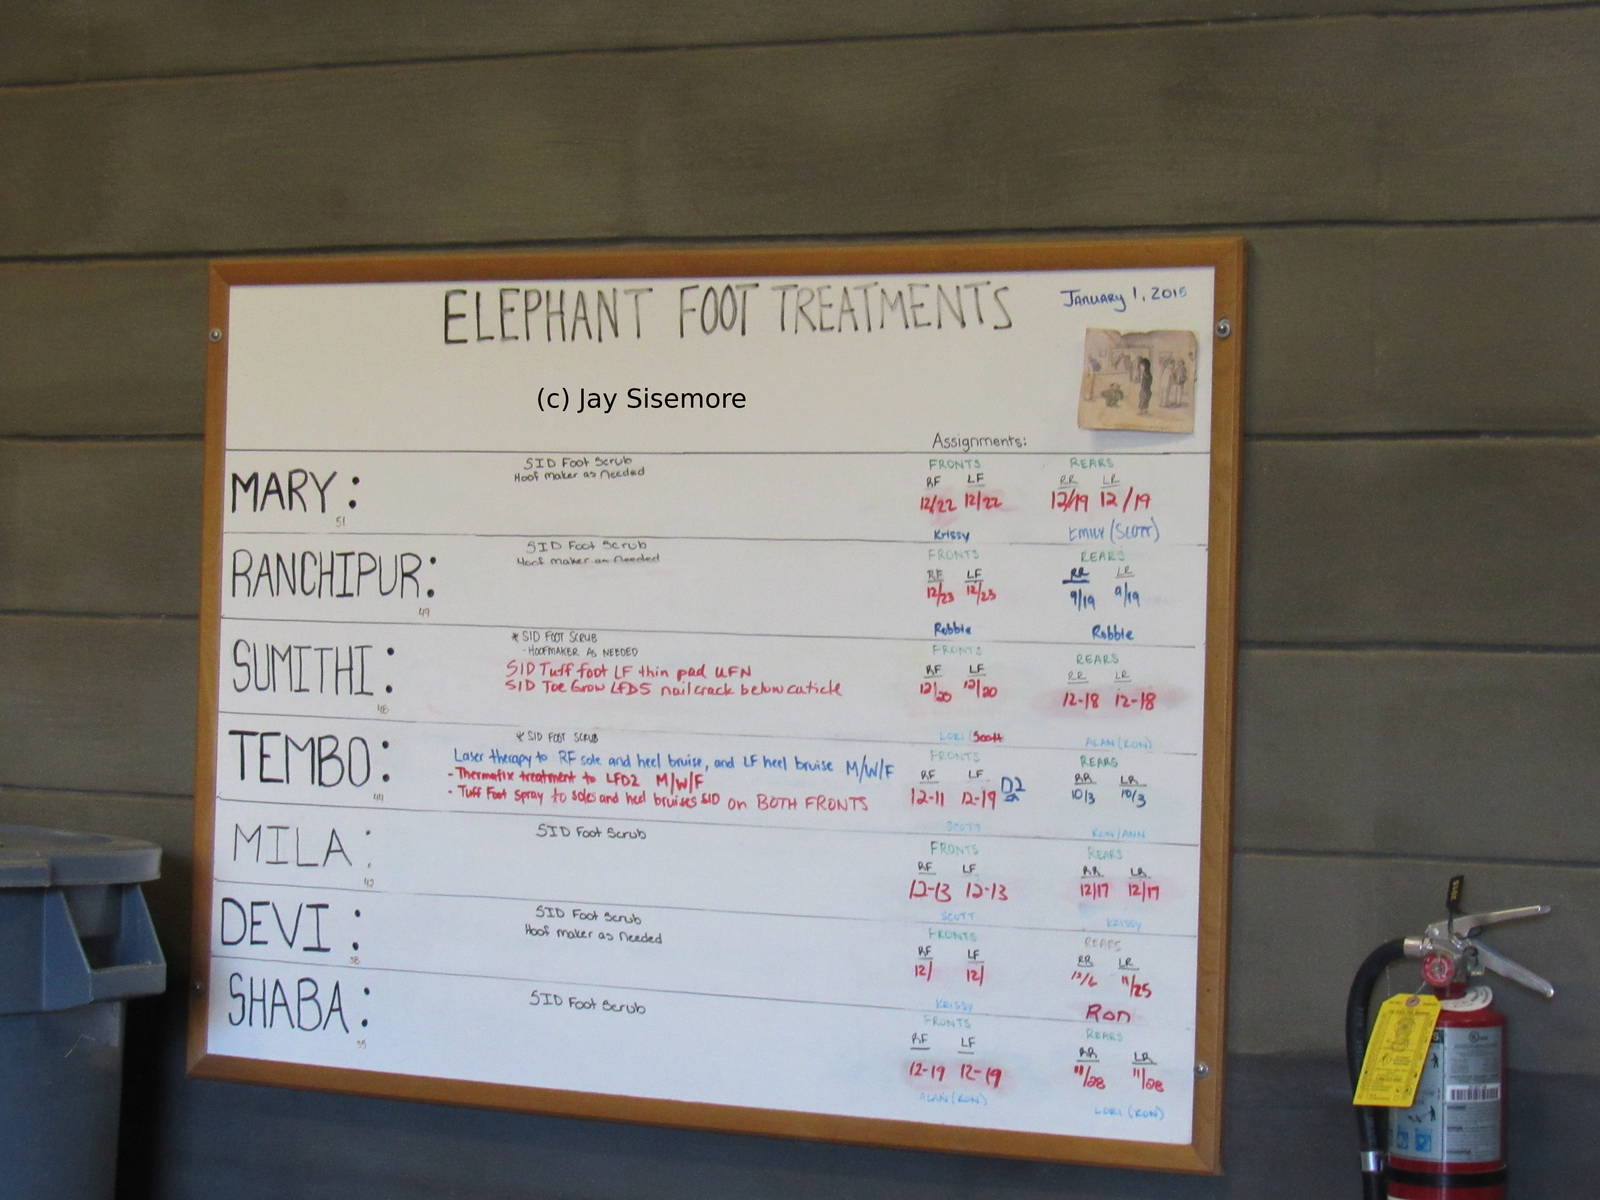 ELEPHANT FOOT TREATMENTS
JANUARY 1, 2015
(c) Jay Sisemore
Assignments:
MARY:
51
SID Foot Scrub
Hoof maker as needed
FRONTS REARS
RF LF RR LR
12/22 12/22 12/19 12/19
Krissy EMILY (SCOTT)
RANCHIPUR:
49
SID Foot Scrub
Hoof maker as needed
FRONTS REARS
RF LF RR LR
12/23 12/23 9/19 9/19
Robbie Robbie
SUMITHI:
48
* SID FOOT SCRUB
- HOOFMAKER AS NEEDED
SID Tuff foot LF thin pad UFN
SID Toe Grow LFD5 nail crack below cuticle
FRONTS REARS
RF LF RR LR
12/20 12/20 12-18 12-18
LORI (Scott ALAN (RON)
TEMBO:
44
* SID FOOT SCRUB
Laser therapy to RF sole and heel bruise, and LF heel bruise M/W/F
- Thermafix treatment to LFD2 M/W/F
- Tuff Foot Spray to soles and heel bruises SID on BOTH FRONTS
FRONTS REARS
RF LF RR LR
12-11 12-19 D2 10/3 10/3
SCOTT RON/ANN
MILA:
42
SID Foot Scrub
FRONTS REARS
RF LF RR LR
12-13 12-13 12/17 12/17
SCOTT KRISSY
DEVI:
38
SID Foot Scrub
Hoof maker as needed
FRONTS REARS
RF LF RR LR
12/ 12/ 12/6 11/25
KRISSY Ron
SHABA:
35
SID Foot Scrub
FRONTS REARS
RF LF RR LR
12-19 12-19 11/28 11/28
ALAN (RON) LORI (RON)